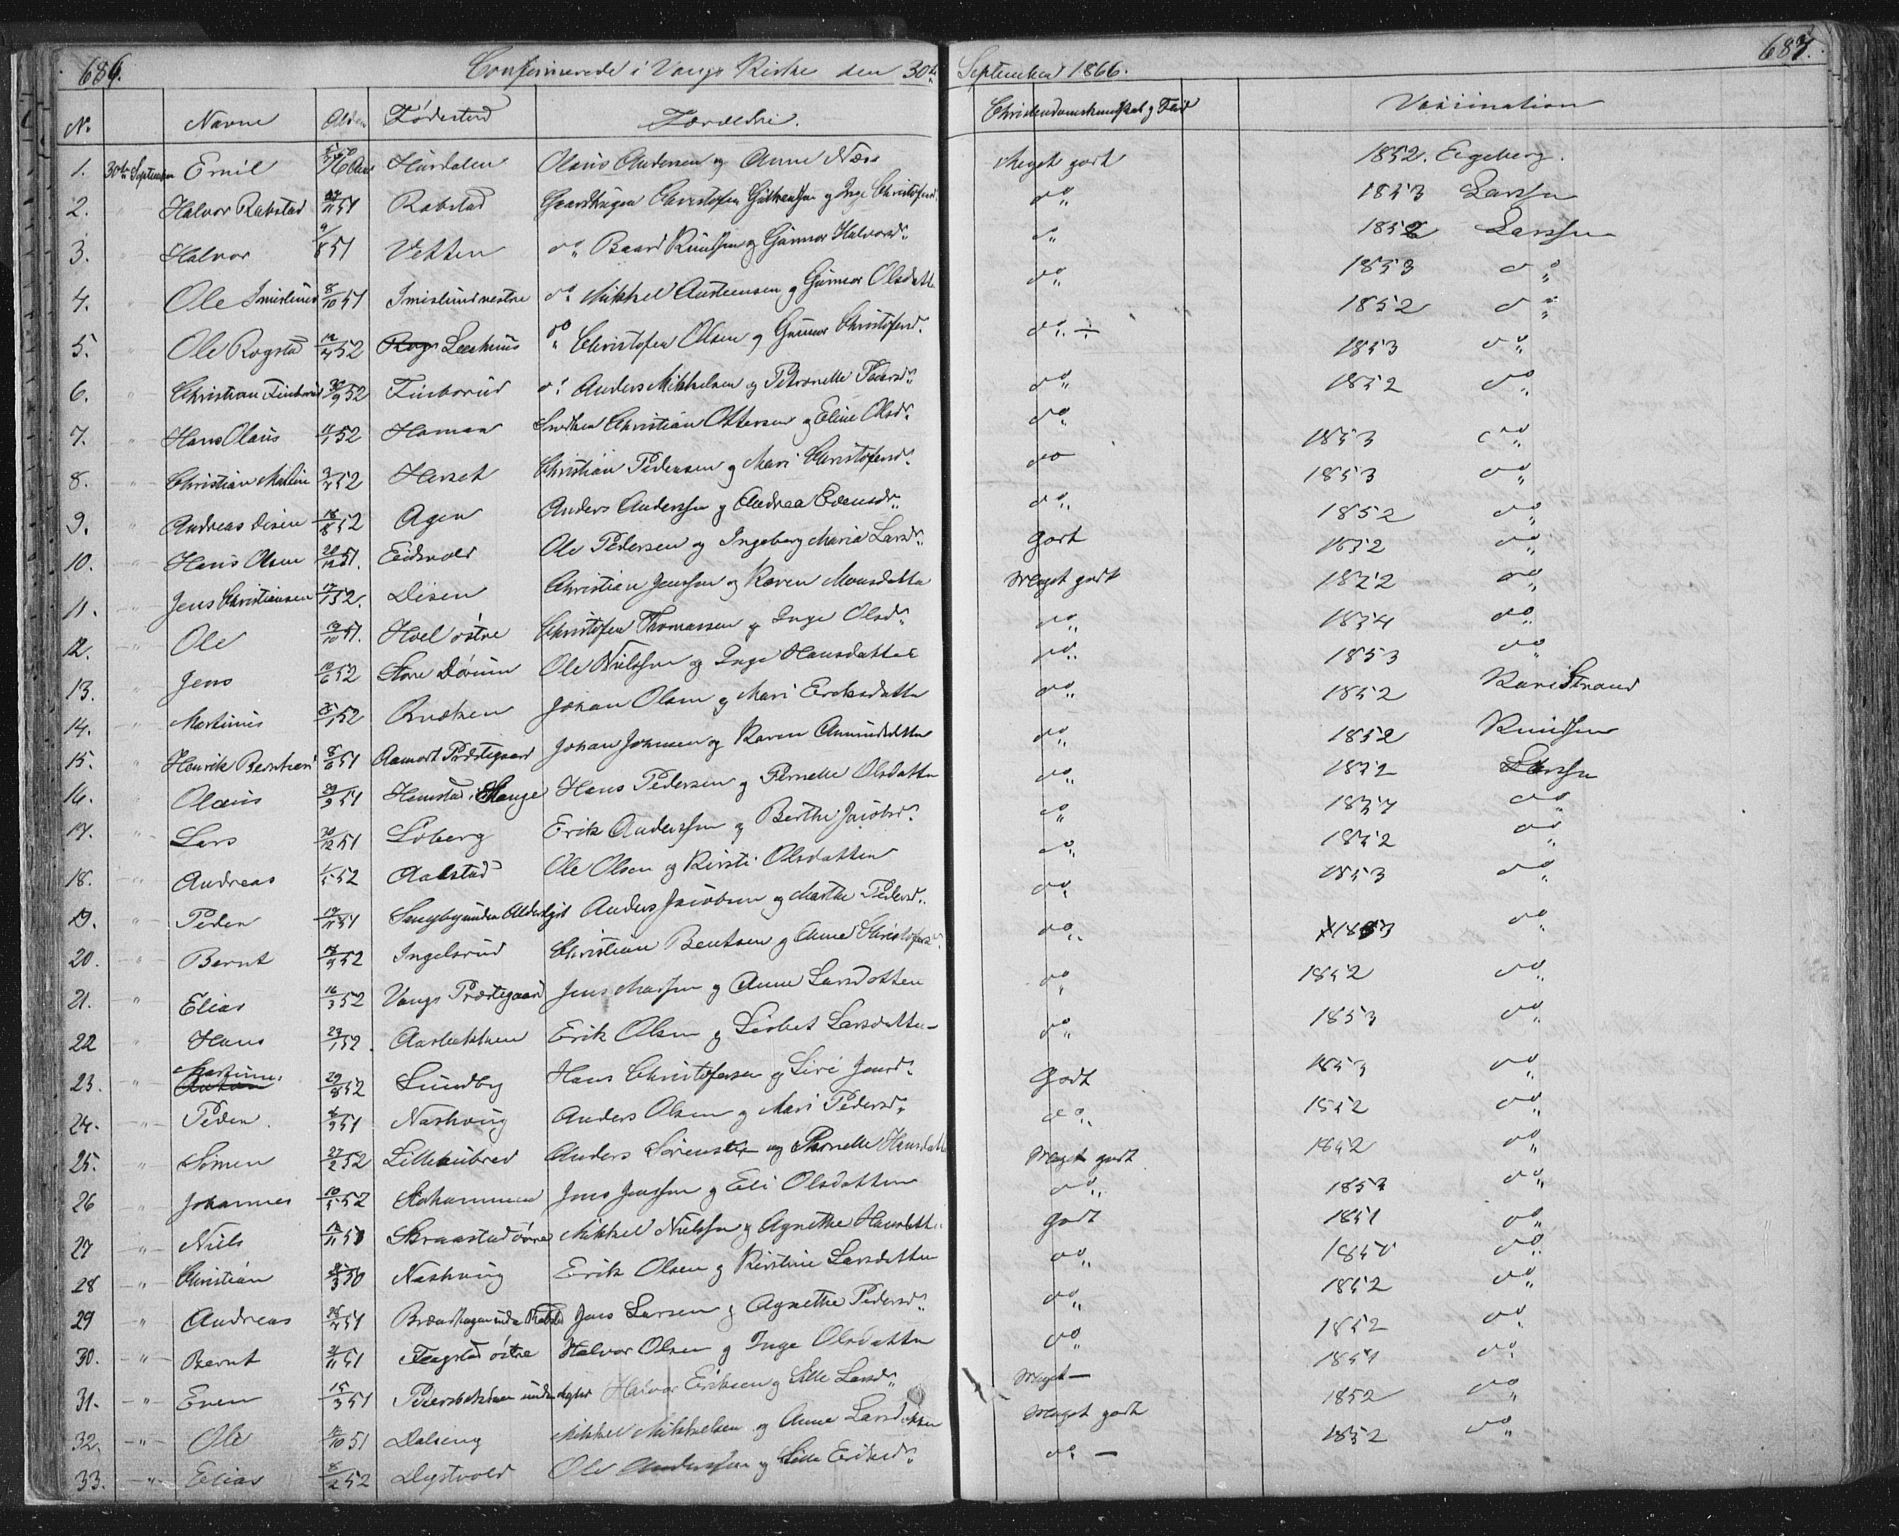 686. Confirmerede i Vangs Kirke den 30te September 1866. 687.
No Navne Alder Fødested Forældre. Christendomskundskab og Flid Vaccination
1. 30te September Emil Hurdalen Olaus Andersen og Anne Næss Meget godt 1852. Eegeberg.
2. " Halvor Rabstad 51 Rabstad Gaardbruger Christofer Gulbrandsen og Inge Christofersd. do 1853 Larsen
3. " Halvor 9/8 51 Vekten do Baard Knudsen og Gunnor Halvorsdr do 1852 Larssen
4. " Ole Imislund 8/10 51 Imislund vestre do Mikkel Austensen og Gunnor Olsdatter do 1853 do
5. " Ole Rogstad 52 Leeshuus do Christofer Olsen og Gunnor Christofersd. do 1852 do
6. " Christian Finborud 30/9 52 Finborud do Anders Mikkelsen og Petronelle Pedersdr do 1853 do
7. " Hans Olaus 52 Homan Christian Ottersen og Eline Olsdr do 1852 do
8. " Christian 52 Harset Christian Pedersen og Mari Christofersdr do 1853 do
9. " Andreas Disen 18/8 52 Agen Anders Anderssen og Andrea Evensdr do 1853 do
10. " Hans Olsen 51. Eidsvold Ole Pedersen og Ingeborg Maria Larsdr Godt 1852 do
11. " Jens Christiansen 52. Disen Christian Jenssen og Karen Monsdatter Meget godt 1852 do
12. " Ole 51. Hoel østre Christofer Thomassen og Inge Olsdr do 1852 do
13. " Jens 52 Store Dørum Ole Nielssen og Inge Hansdatter do 1854 do
14. " Martinus 52 Johan Olsen og Mari Eriksdatter do 1853 do
15. " Henrik Berntsen 8/6 51 Aamot Præstegaard Johan Johnsen og Karen Amundsdatter do 1852 Kari Strand
16. " Olaus 29/9 51 Hamstad i Stange Hans Pedersen og Pernelle Olsdatter do 1852 Knudsen
17. " Lars 30/12 51 Løberg Erik Anderssen og Berthe Jacobsdr do 1852 Larssen
18. " Andreas 52 Aalstad Ole Olsen og Kirsti Olsdatter do do
19. " Peder 51 Anders Jacobsen og Marthe Pedersdr do 1852 do
20. " Bernt 52 Ingelsrud Christian Bentsen og Anne Christofersdr do 1853 do
21. " Elias 16/3 52 Vangs Præstegaard Jens og Anne Larsdatter do 1853 do
22 " Hans 52. Aarbakken Erik Olsen og Lisbet Larsdatter do 1852 do
23. " Martinus 29/8 52 Sundby Hans Christofersen og Siri Jensdr Godt 1853 do
24. " Peder. 51 Nashoug Anders Olsen og Mari Pedersdr do 1853 do
25. " Simen 27/2 52 Lillehubred Anders Sørensen og Pernelle Hansdatter Meget godt 1852 do
26 " Johannes 10/5 52 Stokammen Jens Jenssen og Eli Olsdatter do 1852 do
27 " Niels Skraastad øvre Mikkel Nielsen og Agnethe Hansdatter Godt 1853 do
28 " Christian 50 Nashoug Erik Olsen og Kirstine Larsdatter do 1851 do
29 " Andreas 51 Jens Larsen og Agnethe Pedersdr do 1850 do
30. " Bernt 51 Fragstad østre Halvor Olsen og Inge Olsdatter do 1852 do
31. " Even 15/3 51 Halvor Eriksen og Sille Larsdr Meget – 1852 do
32. " Ole 51 Dalseng Mikkel Mikkelsen og Anne Larsdatter Meget godt 1851 do
33. " Elias 8/2 52 Dystvold Ole Anderssen og Sille Eriksdr do – 1852 do
1852 do